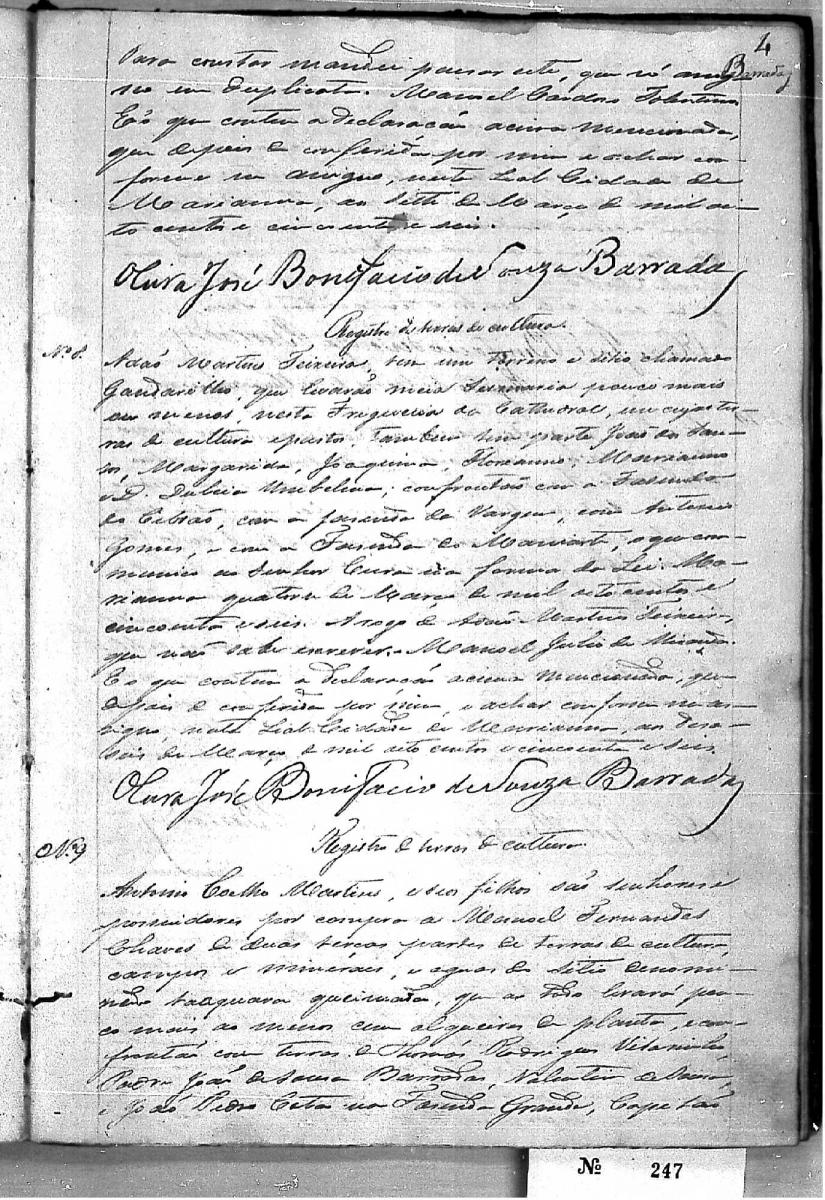 4
Barradas
Para constar mandei passar este, que vó assig
no em duplicata. Manoel Cardoso Tolentino
E só que contem a declaração acima mencionada,
que depois de conferida por mim e achar con-
forme me assigno, nesta Leal Cidade de
Marianna, ao sette de Março de mil oi-
to centos e cincoenta e seis.
O Cura José Bonifacio de Souza Barradas
Registro de terras de cultura.
Nº 8.
Adão Martins Teixeira, tem um terreno e sitio chamado
Gandarelho, que levarão meia Sesmaria pouco mais
ou menos, nesta Freguesia da Cathedral, em cujas ter-
ras de cultura e pastos, tambem tem parte João dos San-
tos, Margarida, Joaquina, Florianno, Marianno
e D. Umbelina; confrontão com a Fazenda
do Cibrão, com a fazenda da Vargem, com Antonio
Gomes, e com a Fazenda do, o que com-
munico ao Senhor Cura na forma da Lei. Ma-
rianna quatorze de Março de mil oito centos e
cincoenta e seis. A rogo de Adão Martins Teixeira,
que não sabe escrever. Manoel Julio de Miranda.
E o que contem a declaração acima mencionada, que
depois de conferida por mim, e achar conforme me as-
signo, nesta Leal Cidade de Marianna, aos deze-
seis de Março de mil oito centos e cincoenta e seis.
O Cura José Bonifacio de Souza Barradas
Registro de terras de cultura.
Nº 9
Antonio Coelho Martins, e seos filhos são senhores e
possuidores por compra a Manoel Fernandes
Chaves de duas terças partes de terras de cultura,
campos e minerais, e agoas do Sitio denomi-
nado taaquara queimada, que ao todo levará pou-
co mais ao menos cem alqueires de planta, e con-
frontão com terras de Thomás Rodrigues,
Padre João de Sousa Barradas, Valentim de Souza,
e João Pedro Cota na Fazenda Grande, Capitão
Nº 247